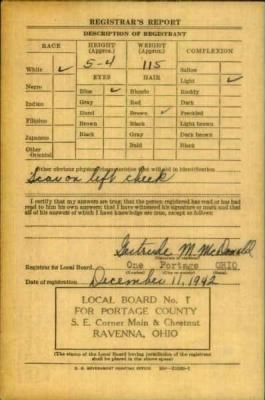 REGISTRAR'S REPORT
DESCRIPTION OF REGISTRANT
RACE
HEIGHT (Approx.)
WEIGHT (Approx.)
COMPLEXION
5-4
115
White ✓
Sallow
EYES
HAIR
Light ✓
Negro
Blue ✓
Blonde
Ruddy
Gray
Red
Dark
Indian
Hazel
Brown ✓
Freckled
Filipino
Brown
Black
Light brown
Japanese
Black
Gray
Dark brown
Other Oriental
Bald
Black
Other obvious physical characteristics that will aid in identification
Scar on left cheek
I certify that my answers are true; that the person registered has read or has had
read to him his own answers; that I have witnessed his signature or mark and that
all of his answers of which I have knowledge are true, except as follows:
Gertrude M. McDonald
Registrar for Local Board One Portage OHIO
Date of registration December 11, 1942
LOCAL BOARD No. 1
FOR PORTAGE COUNTY
S. E. Corner Main & Chestnut
RAVENNA, OHIO
(The stamp of the Local Board having jurisdiction of the registrant
shall be placed in the above space)
U. S. GOVERNMENT PRINTING OFFICE